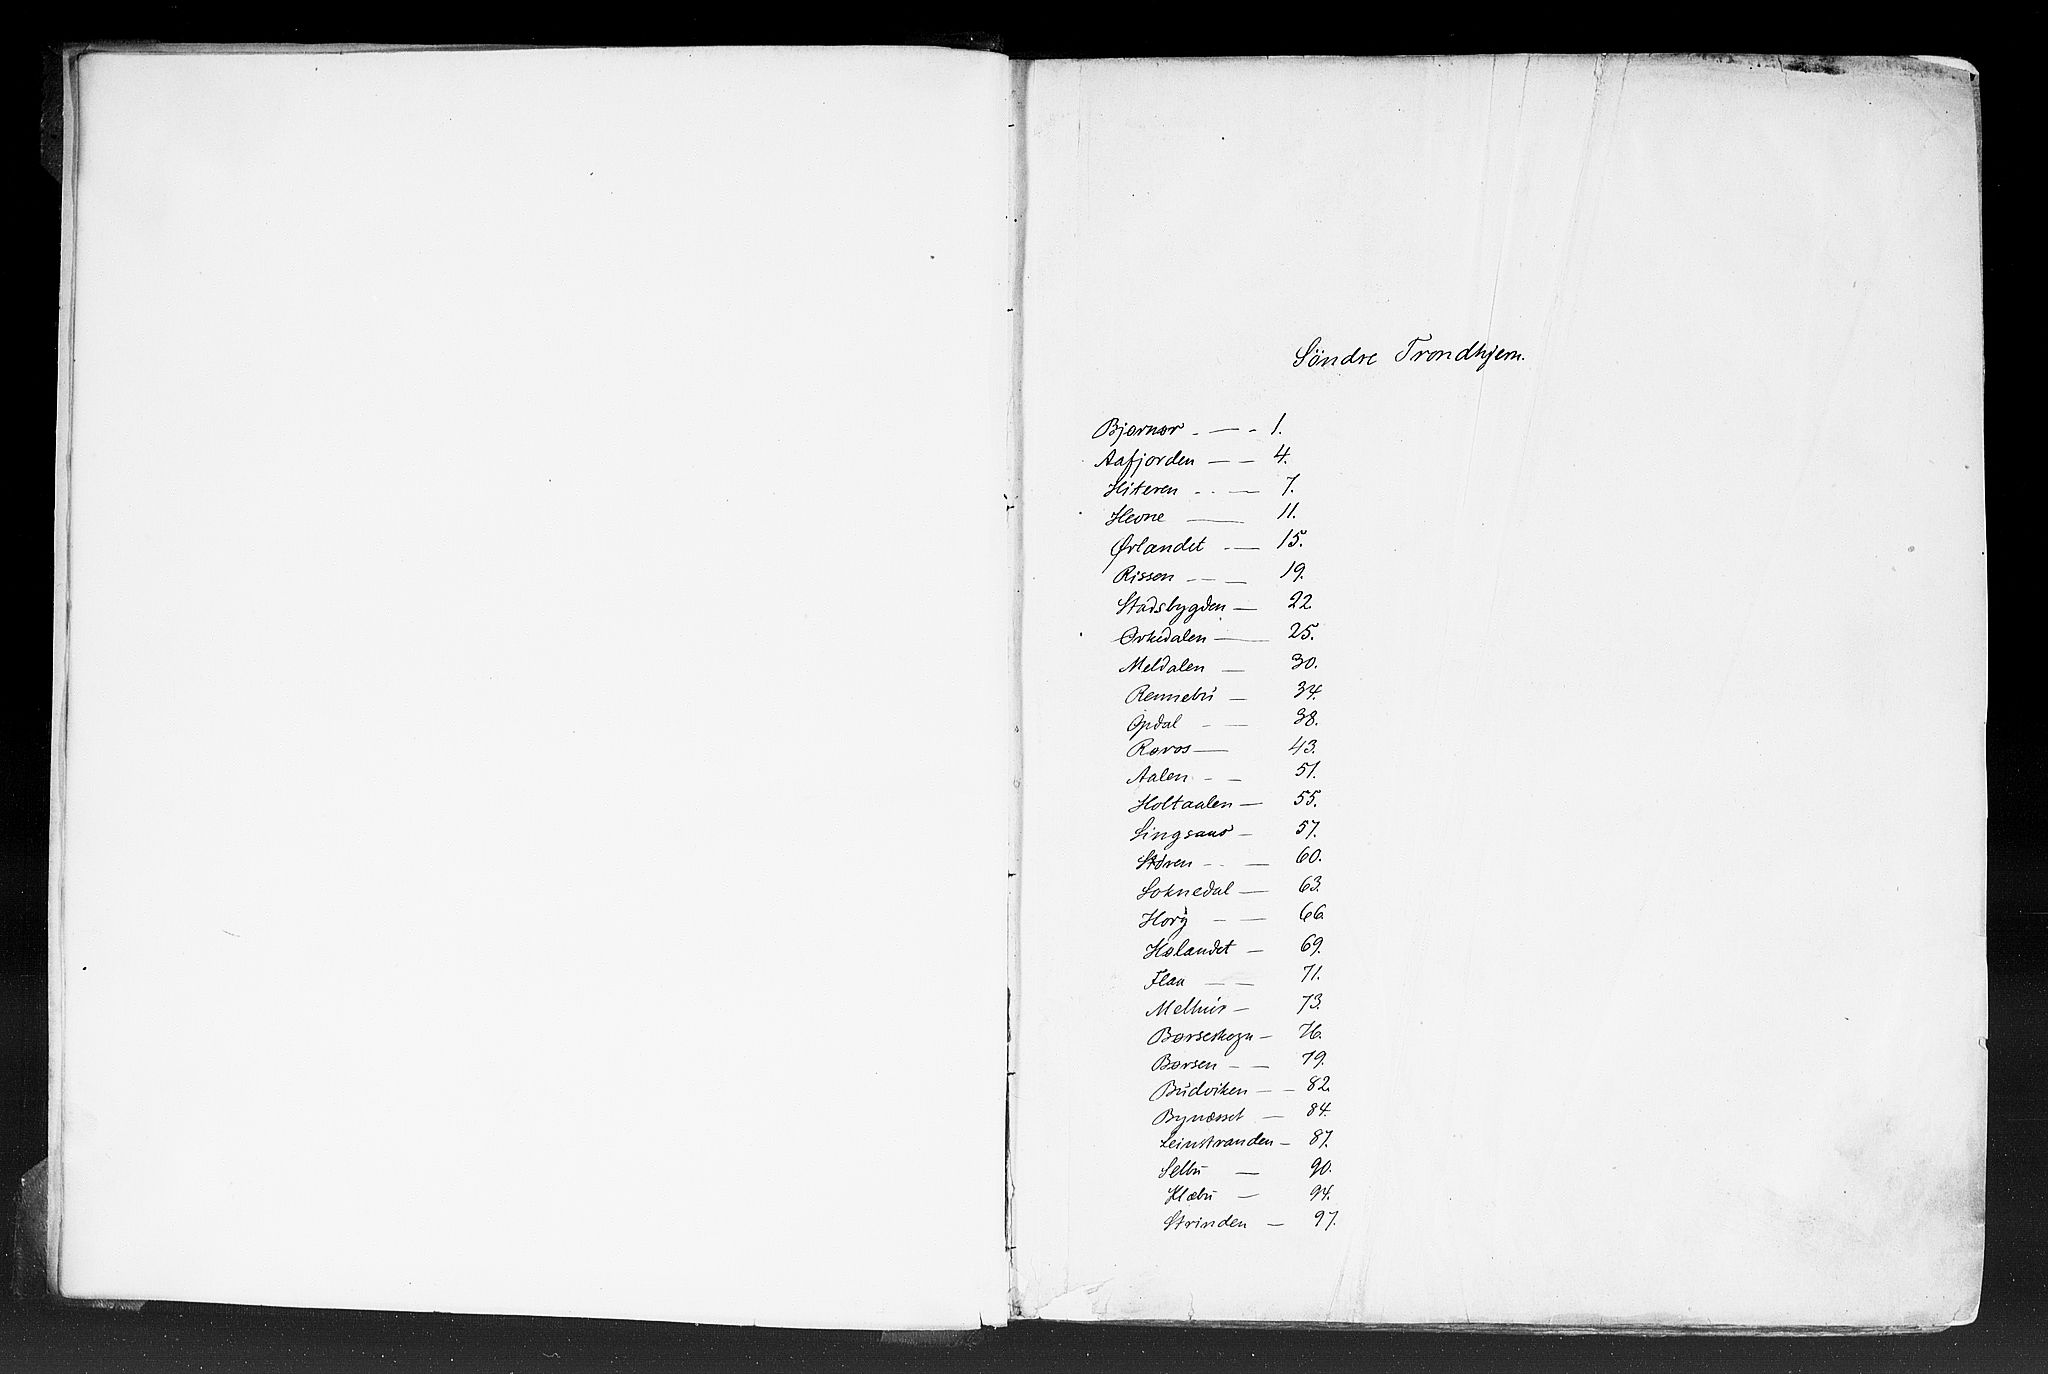 Söndre Trondhjem.
Bjørnør - — - 1.
Aafjorden — — 4.
Hiteren - - — 7.
Hevne — 11.
Ørlandet - — 15.
Rissen - - — 19.
Stadsbygden — 22.
Orkedalen — 25.
Meldalen — 30.
Rennebu — 34.
Opdal - — 38.
Røros — 43.
Aalen - — 51.
Holtaalen — 55.
Singsaas — 57.
Støren - - — 60.
Soknedal — 63.
Horg - — 66.
Hølandet — 69.
Flaa — — 71.
Melhus — 73.
Børseskogn — 76.
Børsen - — 79.
Budviken — — 82.
Bynæsset — 84.
Leinstranden — 87.
Selbu — 90.
Klæbu — 94.
Strinden — 97.